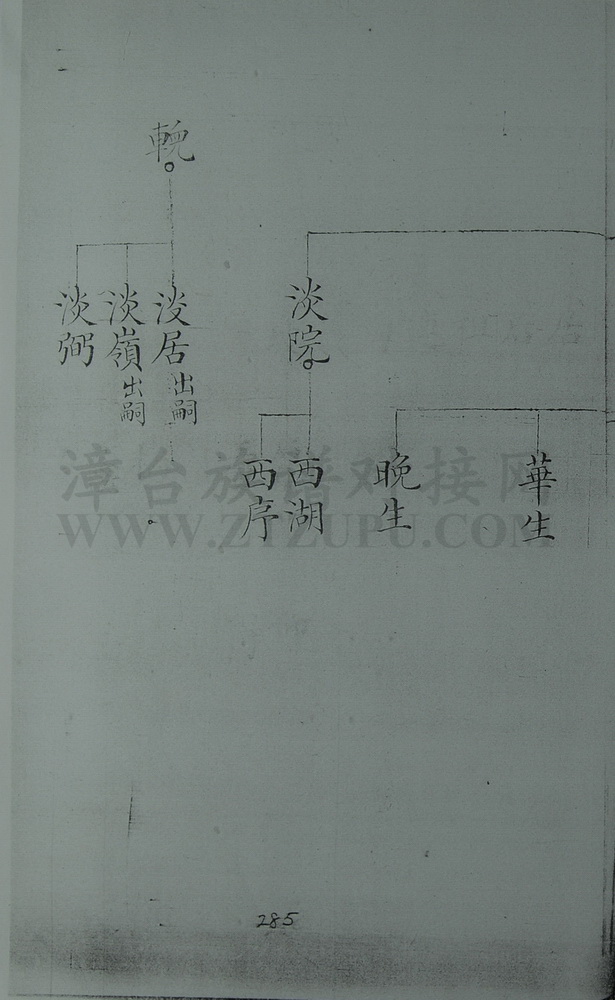 華生
晚生
淡院
西湖
西序
輓
淡居出嗣
淡嶺出嗣
淡弼
漳台族谱对接网
WWW.ZTZUPU.COM
285